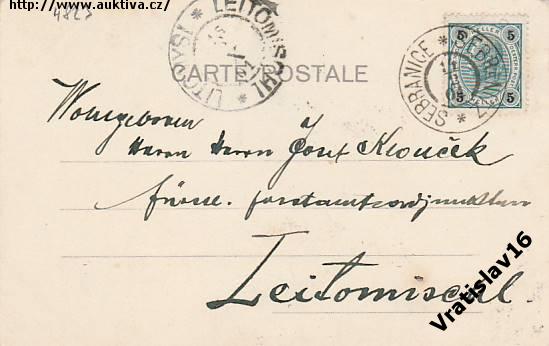 http://www.auktiva.cz/
4823
LITOMYŠL * LEITOMISCHL *
CARTE POSTALE
SEBRANICE *
5 5
HELLER
5 5
Wohlgeboren
Herrn Herrn Josef Klouček
fürstl. Forstamtsadjunkten
Leitomischl.
Vratislav16